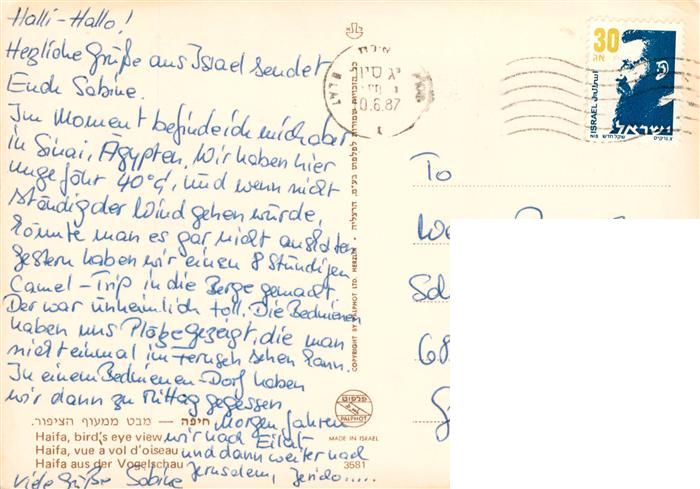 Halli-Hallo!
Herzliche Grüße aus Israel sendet
Euch Sabine.
Im Moment befinde ich mich aber
in Sinai, Ägypten. Wir haben hier
ungefähr 40°C, und wenn nicht
ständig der Wind gehen würde,
könnte man es gar nicht aushalten.
Gestern haben wir einen 8 stündigen
Camel-Trip in die Berge gemacht
Der war unheimlich toll. Die Beduinen
haben uns Plätze gezeigt, die man
nicht einmal im Fernseh sehen kann.
In einem Beduinen-Dorf haben
wir dann zu Mittag gegessen
Morgen fahren
wir nach Eilat
und dann weiter nach
Jerusalem, Jericho.....
Viele Grüße Sabine
חיפה – מבט ממעוף הציפור.
Haifa, bird's eye view
Haifa, vue a vol d'oiseau
Haifa aus der Vogelschau
MADE IN ISRAEL
3581
פלפוט
PALPHOT
כל הזכויות שמורות לפלפוט בע"מ, הרצליה
COPYRIGHT BY PALPHOT LTD. HERZLIA
אילת
יג סיון
0.6.87
ELAT
30
ISRAEL
ישראל
שקל חדש
NIS
To
68